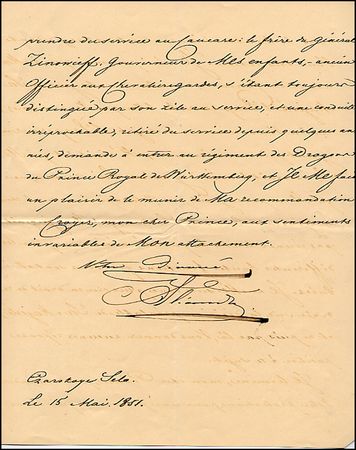 prendre du service au Caucase: le frère du Général
Zinovieff, Gouverneur de Mes enfants, ancien
Officier aux Chevaliergardes, s'étant toujours
distingué par son zèle au service, et une conduite
irréprochable; rétiré du service depuis quelques an-
nées, demande à entrer au régiment des Dragons
du Prince Royal de Würtemberg, et Je Me fais
un plaisir de le munir de Ma recommandation
Croyez, mon cher Prince, aux sentiments
invariables de Mon attachement.
Votre
Czarskoye Selo.
Le 15 Mai. 1851.